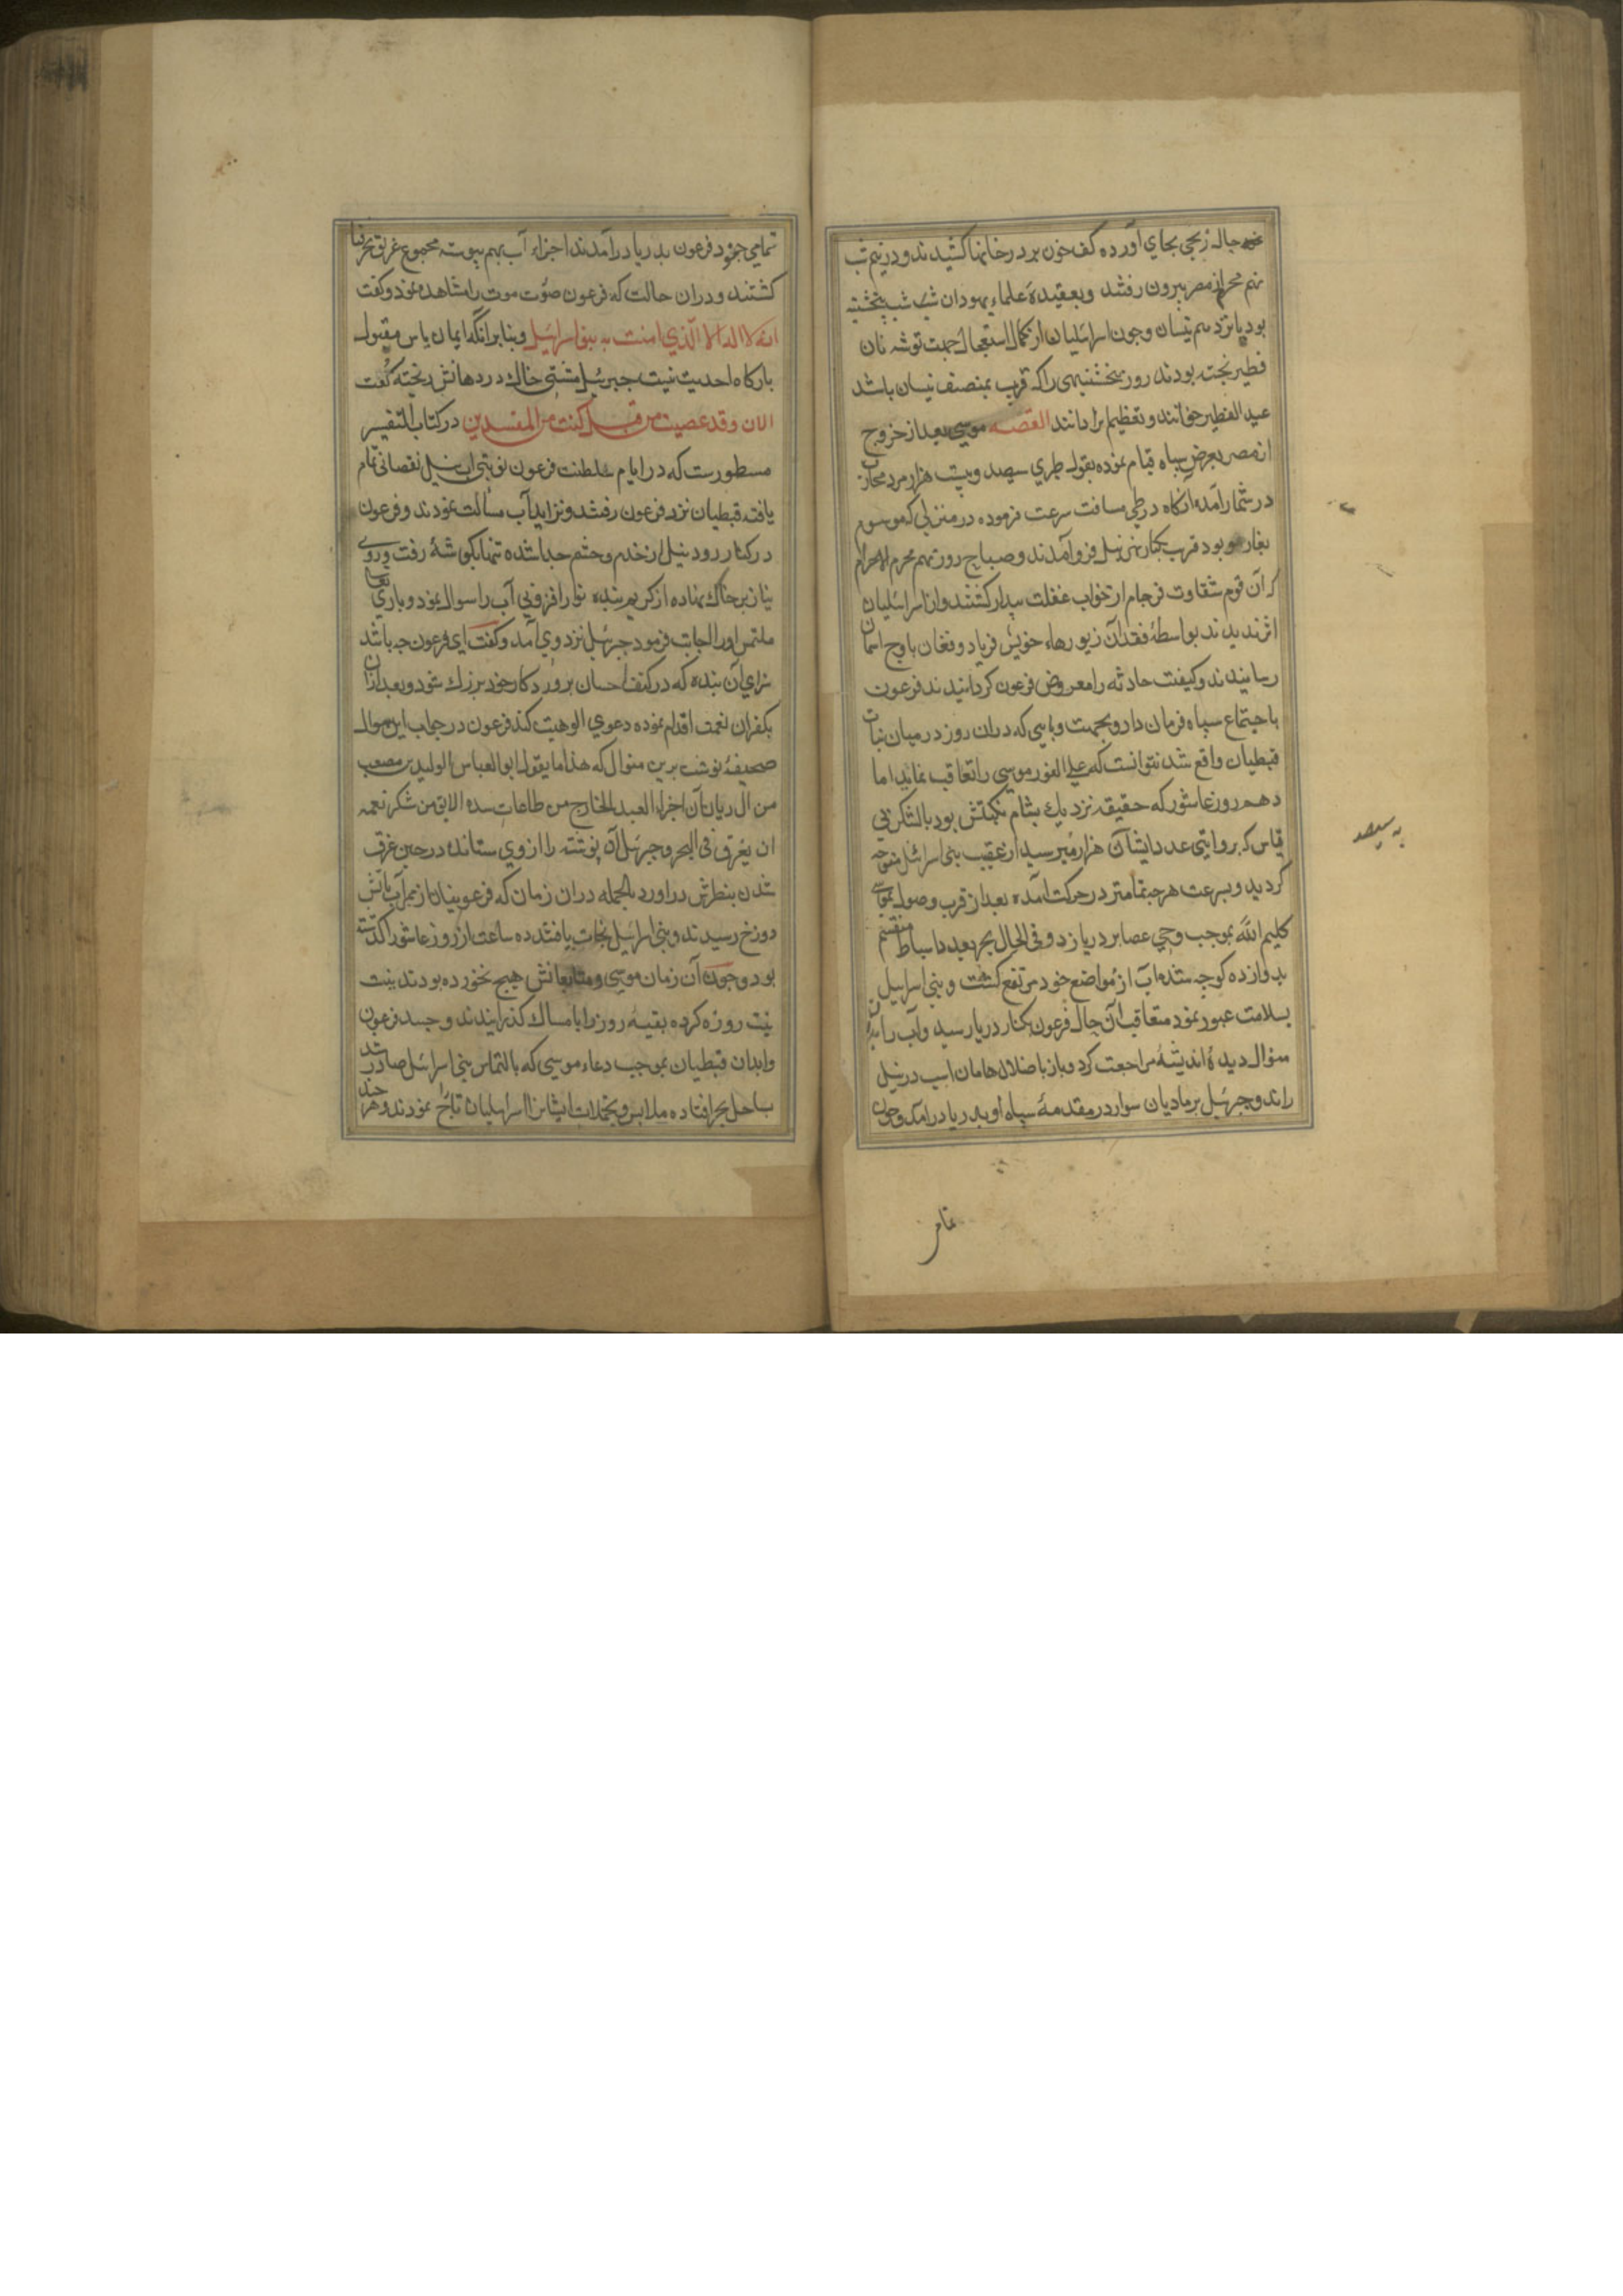 بجای آورده کف خون بر در خانها کشیدند و در نیم شب
نهم محرم از مصر بیرون رفتند و بعقیدهٔ علماء یهود ان شب شب پنجشنبه
بود پانزدهم نیسان و چون اسرائیلیان از کمال استعجال جهت توشه نان
فطیر پخته بودند روز پنجشنبهی را که قریب بمنصف نیسان باشد
عید الفطیر خوانند و تعظیم بر ان دانند القصه موسی بعد از خروج
از مصر بعرض سپاه قیام نموده بقول طبری سیصد و بیست هزار مرد محارب
در شمار آمد آنکاه در طی مسافت سرعت فرموده در منزلی که موسوم
بود قرب بکنار نیل فرو آمدند و صباح روز نهم محرم الحرام
که آن قوم شقاوت فرجام از خواب غفلت بیدار کشتند و از اسرائیلیان
اثر ندیدند بواسطهٔ فقدان زیورهاء خویش فریاد و فغان باوج اسمان
رسانیدند و کیفیت حادثه را معروض فرعون کردانیدند فرعون
باجتماع سپاه فرمان داد و بجهت وبایی که دران روز در میان بنات
قبطیان واقع شد نتوانست که علی الفور موسی را تعاقب نماید اما
دهم روز عاشور که حقیقه نزدیک بشام نکبتش بود با لشکری
قیاس که بروایتی عدد ایشان هزار هزار میرسید از عقیب بنی اسرائیل متوجه
کردید و بسرعت هرچه تمامتر در حرکت آمده بعد از قرب وصول موسی
کلیم الله بموجب وحی عصا بر دریا زد و فی الحال بحر بعدد اسباط منقسم
بدوازده کوچه شده آب از مواضع خود مرتفع کشت و بنی اسرایل
بسلامت عبور نمود متعاقب آن حال فرعون بکنار دریا رسید و آب را بدان
منوال دیده اندیشهٔ مراجعت کرد و باز باضلال هامان اسب در نیل
راند و جبرئیل بر مادیان سوار در مقدمهٔ سپاه او بدریا درآمد و چون
به سیصد
تمامی جنود فرعون بدریا درآمدند اجزاء آب بهم پیوسته مجموع غریق بحر فنا
کشتند و دران حالت که فرعون صورت موت را مشاهده نمود و کفت
انه لا اله الا الذی امنت به بنو اسرائیل و بنا برانکه ایمان یاس مقبول
بارکاه احدیت نیست جبرئیل مشتی خاک در دهانش ریخته کفت
الان و قد عصیت من قبل و کنت من المفسدین در کتاب التفسیر
مسطورست که در ایام سلطنت فرعون نوبتی اب نیل نقصانی تمام
یافته قبطیان نزد فرعون رفتند و تزاید آب مسالت نمودند و فرعون
در کنار رود نیل از خدم و حشم جدا شده تنها بکوشهٔ رفت و روی
نیاز بر خاک نهاده از کریم بنده نواز افزونی آب را سوال نمود و باری تعالی
ملتمس او را اجابت فرمود جبرئیل نزد وی آمد و کفت ای فرعون چه باشد
سزای آن بنده که در کنف احسان پروردکار خود بزرک شود و بعد از ان
بکفران نعمت اقدام نموده دعوی الوهیت کند فرعون در جواب این سوال
صحیفهٔ نوشت برین منوال که هذا ما یقول ابو العباس الولید بن مصعب
من ال ریان ان جزاء العبد الخارج من طاعات سیده الابق من شکر نعمه
ان یغرق فی البحر و جبرئیل آن نوشته را از وی ستانده در حین غرق
شدن بنظرش دراورد بالجمله دران زمان که فرعونیان از بحر آب باتش
دوزخ رسیدند و بنی اسرائیل نجات یافتند ده ساعت از روز عاشورا کذشته
بود و چون آن زمان موسی و متابعانش هیچ نخورده بودند بنیت
نیت روزه کرده بقیهٔ روز را بامساک کذرانیدند و جسد فرعون
و ابدان قبطیان بموجب دعاء موسی که بالتماس بنی اسرائیل صادر شد
بساحل بحر افتاده ملابس و تجملات ایشانرا اسرائیلیان تاراج نمودند و هر چند